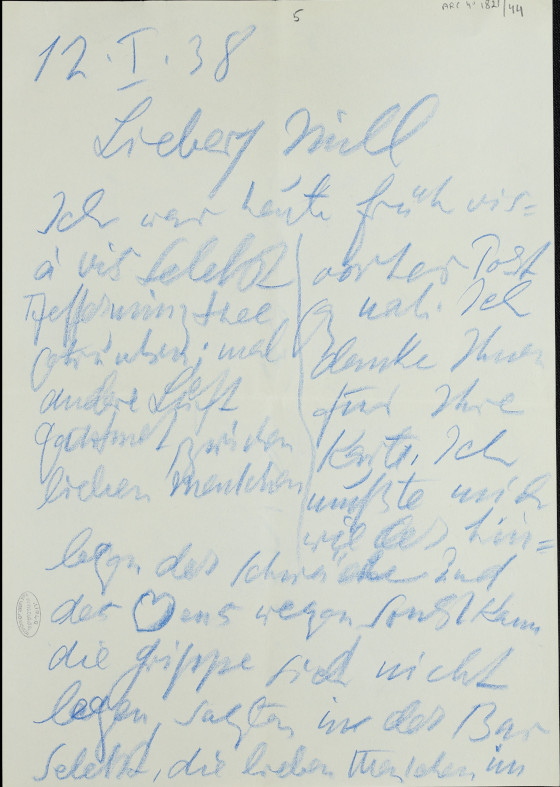 ARC 4° 1821/44
5
12. I. 38
Lieber Nill
Ich war heute früh vis=
à vis Select
Pfefferminzthee
getrunken; mal
andere Luft
geatmet zu den
lieben Menschen
vorher Post
nah. Ich
danke Ihnen
für Ihre
Karte. Ich
müßte mich
wieder hin=
legen der Schwäche und
des ♡ens wegen sonst kann
die Grippe sich nicht
legen, sagten in der Bar
Select, die lieben Menschen im